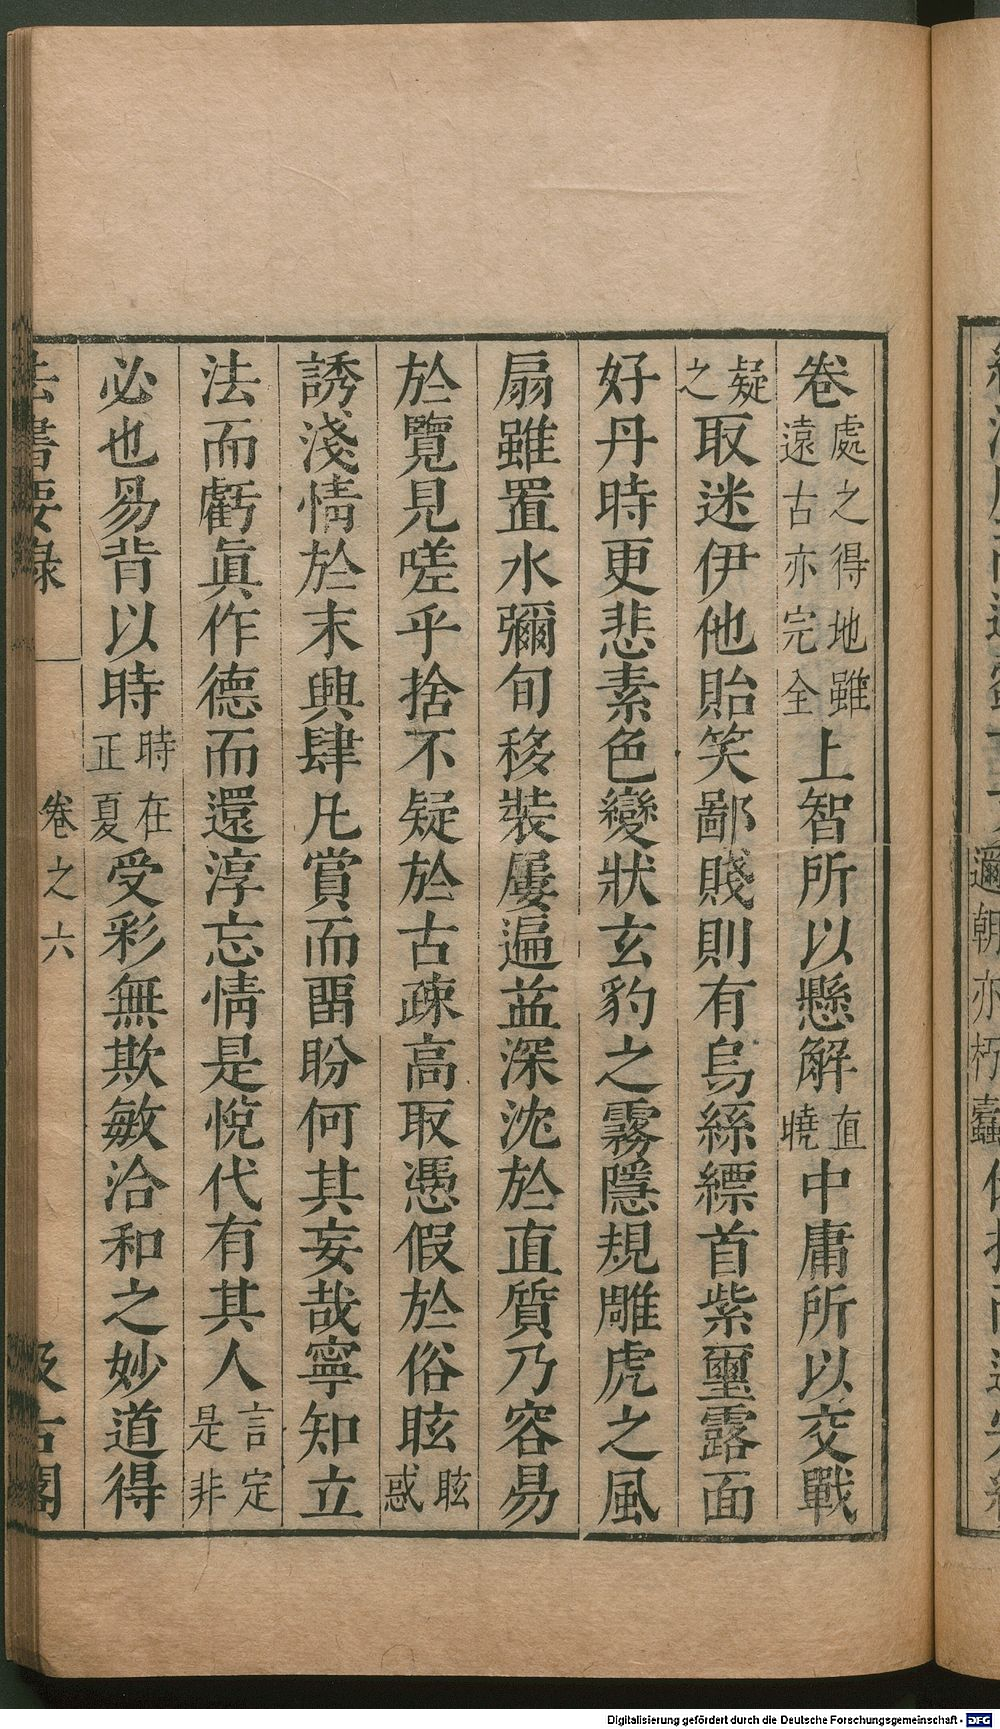 卷處之得地雖遠古亦完全上智所以懸解直曉中庸所以交戰
疑之取迷伊他貽笑鄙賤則有烏絲縹首紫璽露面
好丹時更悲素色變狀玄豹之霧隱規雕虎之風
扇雖置水彌旬移裝屢遍益深沈於直質乃容易
於覽見嗟乎捨不疑於古疎高取憑假於俗眩眩惑
誘淺情於末興肆凡賞而畱盼何其妄哉寧知立
法而虧眞作德而還淳忘情是悅代有其人言定是非
必也易背以時時在正夏受彩無欺敏洽和之妙道得
法書要錄 卷之六 汲古閣
邇朝亦朽蠹
Digitalisierung gefördert durch die Deutsche Forschungsgemeinschaft - DFG